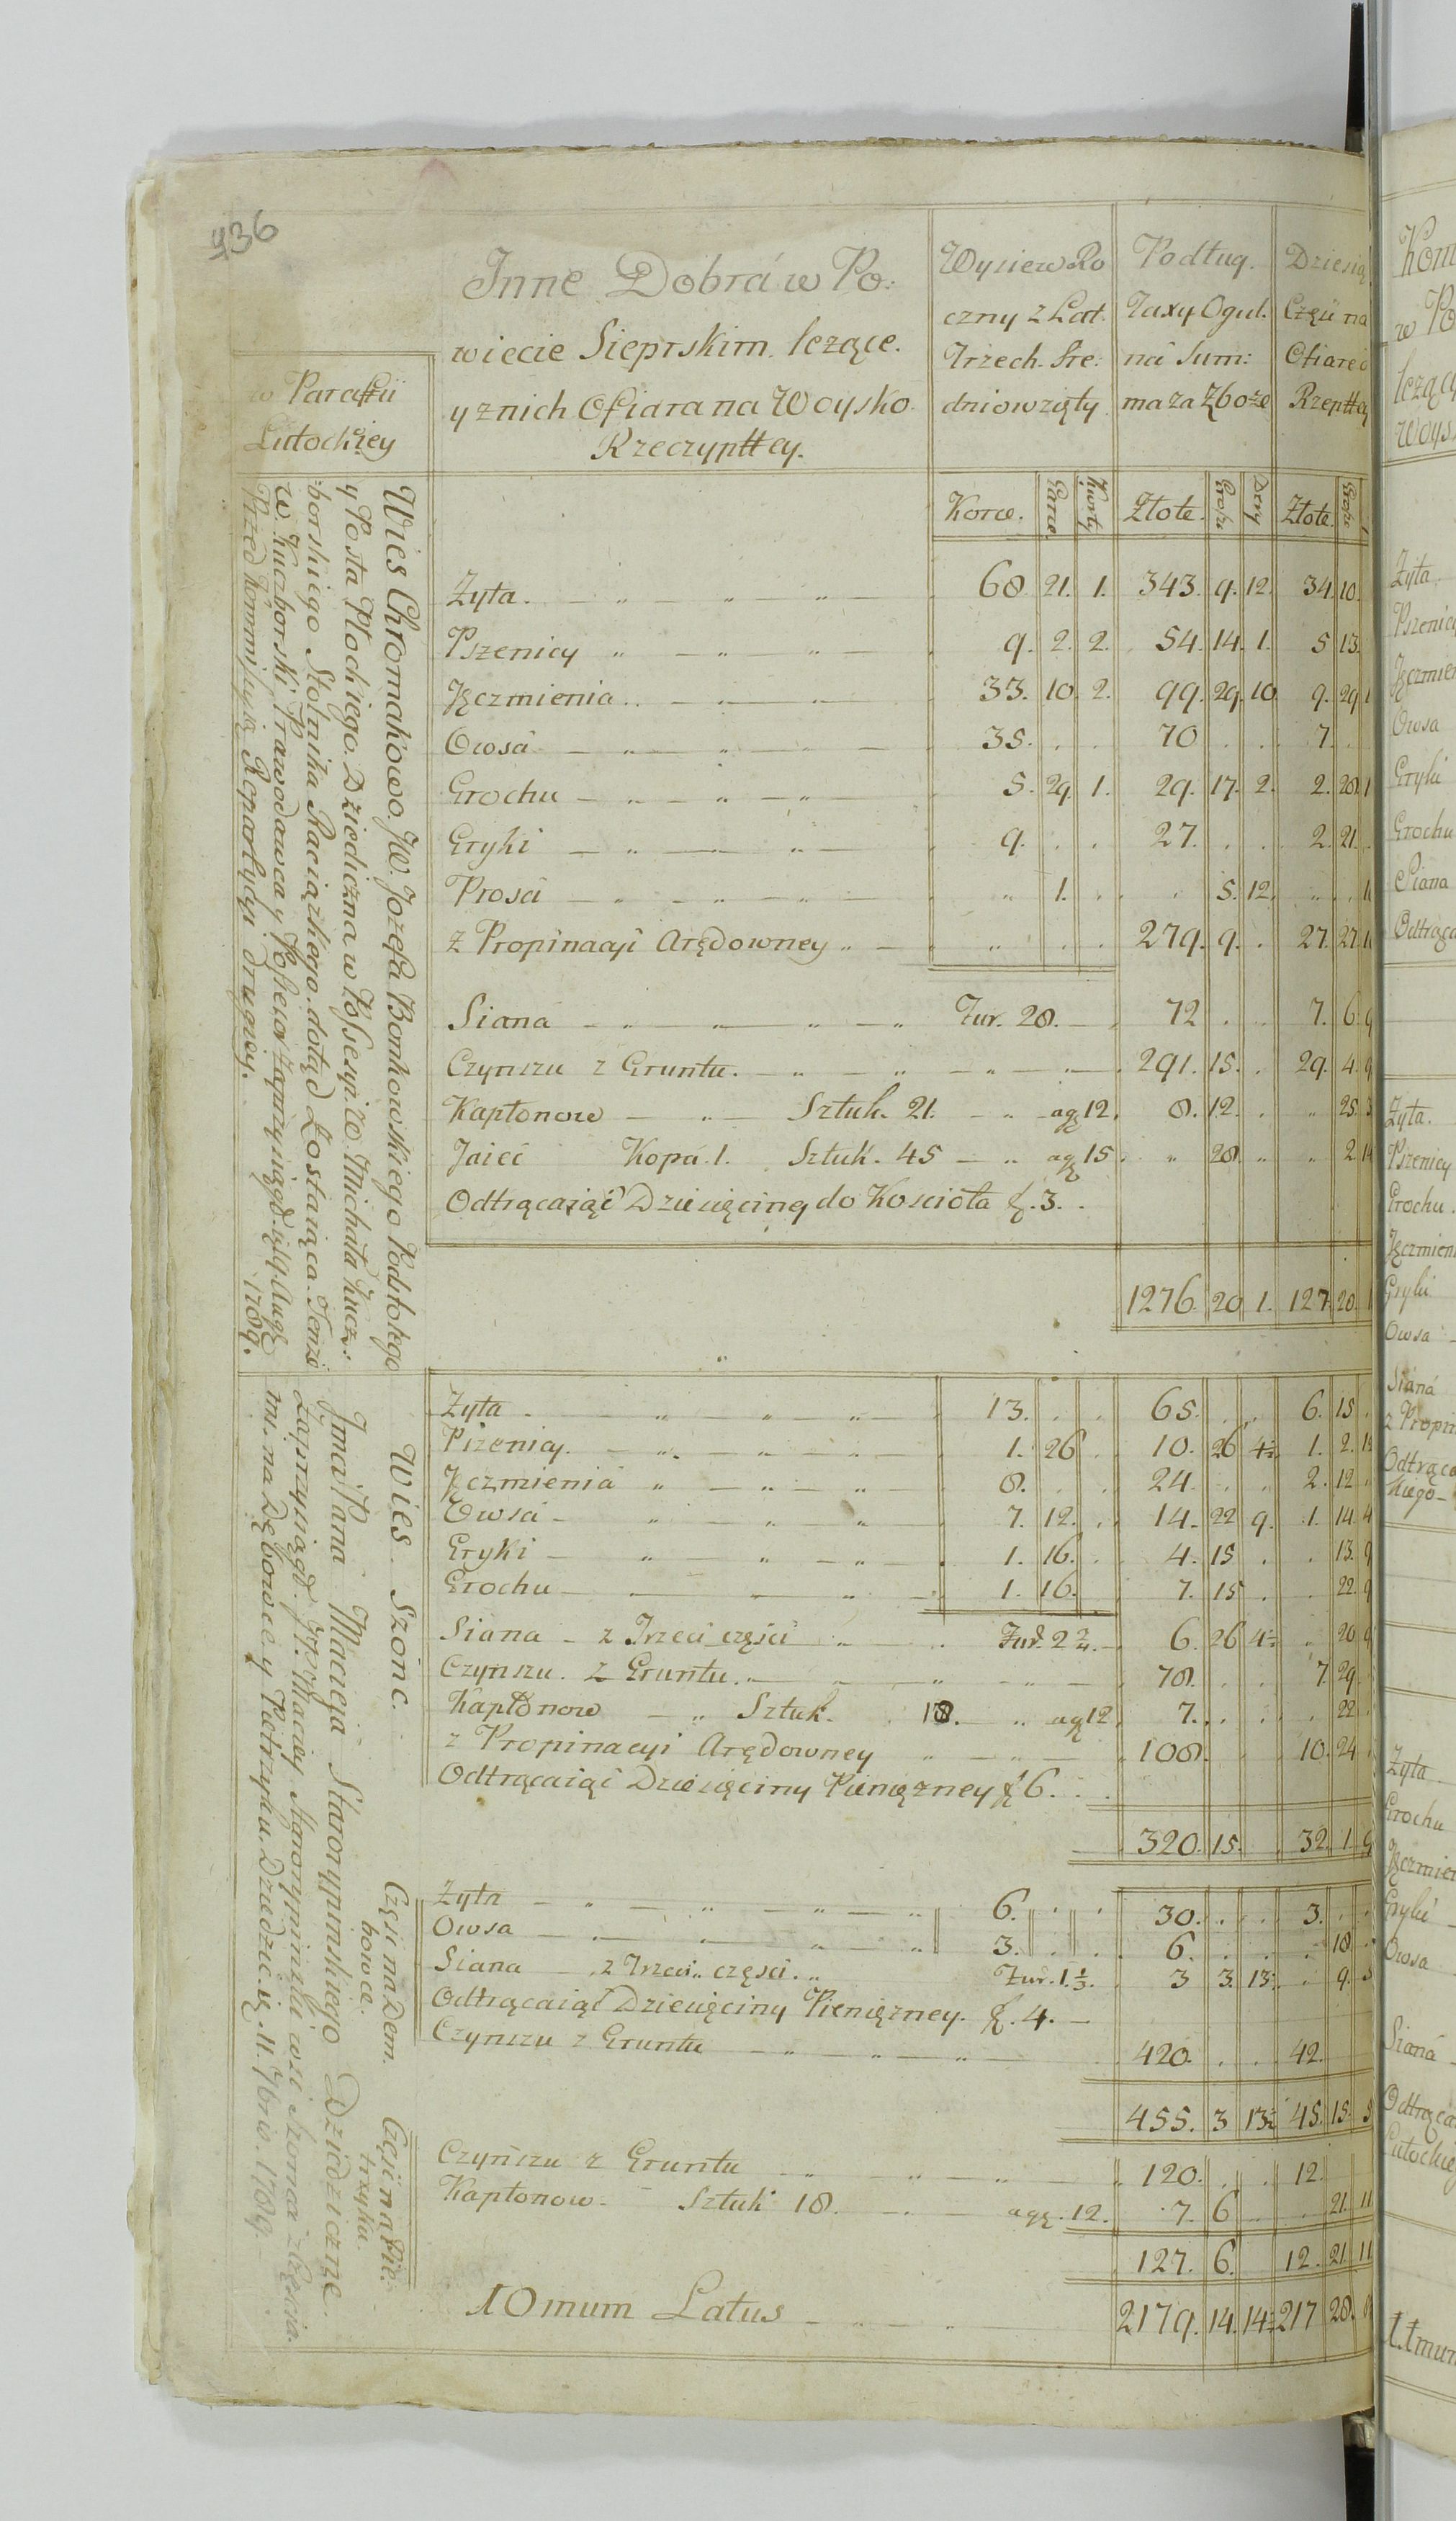 936
w Parafii
Lutockiey
Inne Dobrá w Po:
wiecie Sieprskim leżące.
y znich Ofiara na Woysko
Rzeczypttey.
Wysiew Ro
czny z Lat.
Trzech. Sre:
dnio wzięty
Podług.
Taxy Ogul.
ná Sum:
ma za Zboże
Dziesią
Częśi na
Ofiare d
Rzeptte
Korce. Garce Kwarty Złote. Grosze Deny Złote. Grosze
Wies Chromakowo. JW. Jozefa Bonkowskiego Podstolego
y Posła Płockiego. Dziedziczna w Possesyi. W. Michała Kucz:
borskiego Stolnika Raciązkiego. dotąd Zostaiąca. Tenże
W. Kuczborski Prawodawca y Possesor zaprzysiągł. d. 19. Aug
Przed Kommissyią Repartycyi drugiey. 1789.
Żyta. 68. 21. 1. 343. 9. 12. 34. 10.
Pszenicy 9. 2. 2. 54. 14. 1. 5 13.
Jęczmienia 33. 10. 2. 99. 29. 10 9. 29 1
Owsá 35. 70 7.
Grochu 5. 29. 1. 29. 17. 2. 2. 28. 1
Gryki 9. 27. 2. 21.
Prosá 1. 5. 12. 1
z Propinacyi Arędowney 279. 9. 27. 27. 1
Siana Fur. 28. 72 7. 6 9
Czynszu z Gruntu. 291. 15. 29. 4. 9
Kapłonow Sztuk. 21. a g 12. 8. 12. 25. 3
Jaiec Kopa. 1. Sztuk. 45 a g 15. 28. 2 14
Odtrącaiąc Dziesięcinę do Kościoła zł. 3.
1276. 20 1. 127. 20. 1
Wies Szonc.
Jmá Pana Macieja Starorypinskiego Dziedziczne.
Zaprzysiągł. JP. Maciey Starorypinski wsi Szonca z Częscia.
mi. na Dębowce. y Pietrzyku. Dziedzic. d. 11. 7bris. 1789.
Żyta 13. 65. 6. 15
Pszenicy. 1. 26 10. 26 4½ 1. 2. 13
Jęczmienia 8. 24. 2. 12
Owsá 7. 12. 14. 22 9. 1. 14. 4
Gryki 1. 16. 4. 15 13. 9
Grochu 1. 16. 7. 15 22. 9
Siana z Trzeci częsci Fur. 2¾ 6. 26 4½ 20 9
Czynszu. z Gruntu. 78. 7. 29.
Kapłonow Sztuk. 18. a g 12 7. 22
z Propinacyi Arędowney 108. 10. 24
Odtrącaiąc Dziesięciny Pienięzney zł 6.
320. 15. 32. 1. 9
Częśi na Dem.
bowce.
Żyta 6. 30. 3.
Owsa 3. 6. 18
Siana z Trzeci częsci. Fur. 1⅓. 3 3. 13½ 9. 5
Odtrącaiąc Dziesięciny Pienięzney. zł. 4.
Czynszu z Gruntu 420. 42.
455. 3 13½ 45. 15. 5
Częśc na Pie.
trzyku.
Czynszu z Gruntu 120. 12.
Kapłonow. Sztuk 18. a g. 12. 7. 6 21. 11
127. 6. 12. 21. 11
10mum Latus 2179. 14. 14½ 217 28.
Kom
w Po
leżąc
Woys.
Żyta.
Pszenicy
Jęczmien
Owsa
Gryki
Grochu
Siana
Odtrąca
Żyta.
Pszenicy
Grochu.
Jęczmieni
Gryki
Owsa
Siáná
z Propin
Odtrąca
kiego
Żyta
Grochu
Jęczmien
Gryki
Owsa
Siáná
Odtrąca
Lutockie
11mum